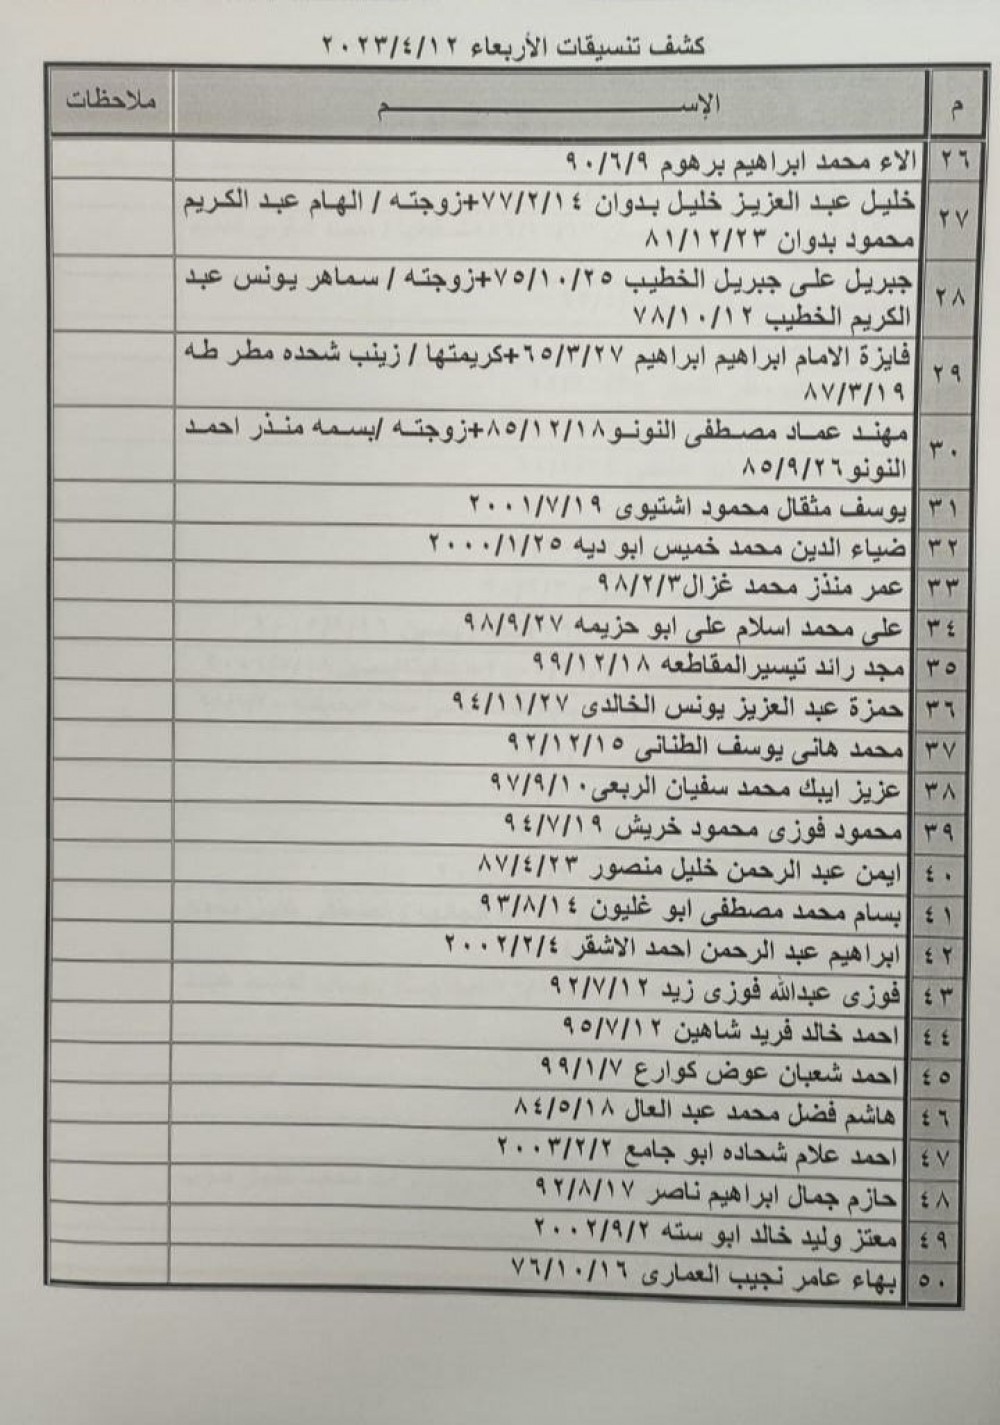 كشف تنسيقات الأربعاء ٢٠٢٣/٤/١٢
م الإســـــــــــم ملاحظات
٢٦ الاء محمد ابراهيم برهوم ٩٠/٦/٩
٢٧ خليل عبد العزيز خليل بدوان ٧٧/٢/١٤+زوجته / الهام عبد الكريم
محمود بدوان ٨١/١٢/٢٣
٢٨ جبريل على جبريل الخطيب ٧٥/١٠/٢٥+زوجته / سماهر يونس عبد
الكريم الخطيب ٧٨/١٠/١٢
٢٩ فايزة الامام ابراهيم ابراهيم ٦٥/٣/٢٧+كريمتها / زينب شحده مطر طه
٨٧/٣/١٩
٣٠ مهند عماد مصطفى النونو٨٥/١٢/١٨+زوجته /بسمه منذر احمد
النونو٨٥/٩/٢٦
٣١ يوسف مثقال محمود اشتيوى ٢٠٠١/٧/١٩
٣٢ ضياء الدين محمد خميس ابو ديه ٢٠٠٠/١/٢٥
٣٣ عمر منذز محمد غزال٩٨/٢/٣
٣٤ على محمد اسلام على ابو حزيمه ٩٨/٩/٢٧
٣٥ مجد رائد تيسيرالمقاطعه ٩٩/١٢/١٨
٣٦ حمزة عبد العزيز يونس الخالدى ٩٤/١١/٢٧
٣٧ محمد هانى يوسف الطنانى ٩٢/١٢/١٥
٣٨ عزيز ايبك محمد سفيان الربعى٩٧/٩/١٠
٣٩ محمود فوزى محمود خريش ٩٤/٧/١٩
٤٠ ايمن عبد الرحمن خليل منصور ٨٧/٤/٢٣
٤١ بسام محمد مصطفى ابو غليون ٩٣/٨/١٤
٤٢ ابراهيم عبد الرحمن احمد الاشقر ٢٠٠٢/٢/٤
٤٣ فوزى عبدالله فوزى زيد ٩٢/٧/١٢
٤٤ احمد خالد فريد شاهين ٩٥/٧/١٢
٤٥ احمد شعبان عوض كوارع ٩٩/١/٧
٤٦ هاشم فضل محمد عبد العال ٨٤/٥/١٨
٤٧ احمد علام شحاده ابو جامع ٢٠٠٣/٢/٢
٤٨ حازم جمال ابراهيم ناصر ٩٢/٨/١٧
٤٩ معتز وليد خالد ابو سته ٢٠٠٢/٩/٢
٥٠ بهاء عامر نجيب العمارى ٧٦/١٠/١٦